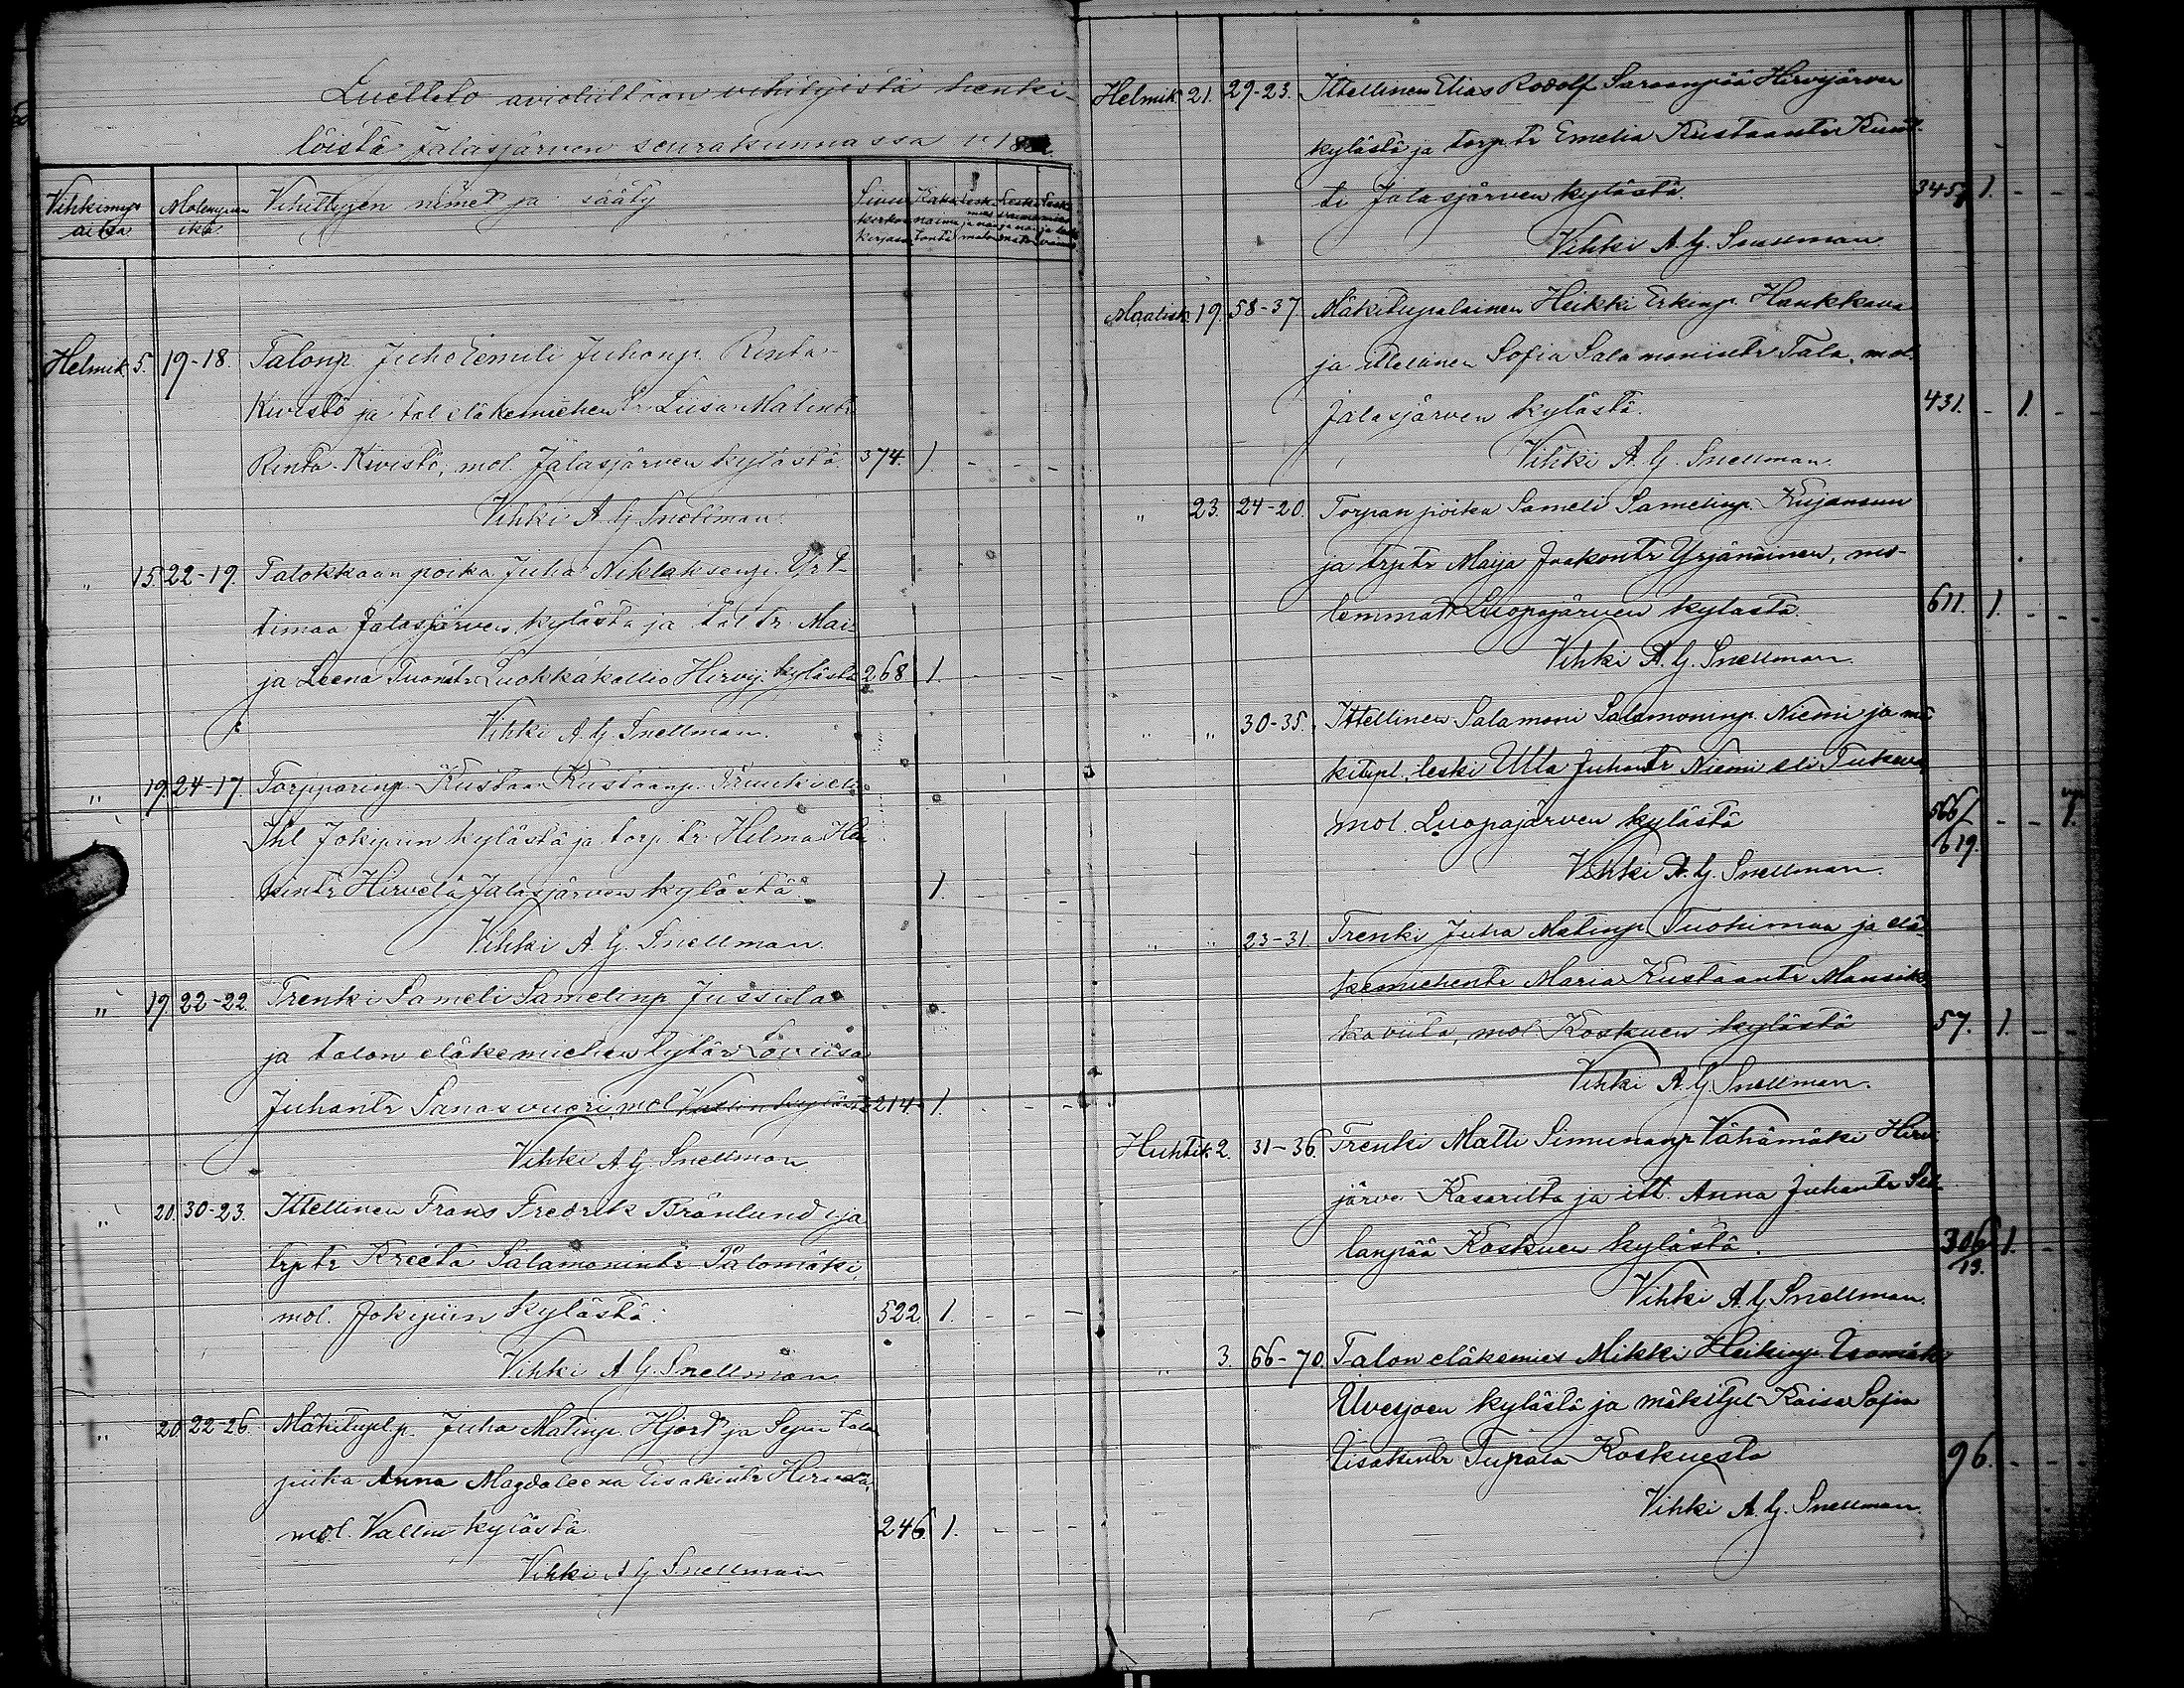 Luettelo avioliittoon vihityistä henki-
löistä Jalasjärven seurakunnassa v. 18
Vihkimys aika Molempien ikä Vihittyjen nimet ja sääty Sivu kirkon kirjassa
Helmik. 5. 19-18. Talonp. Juho Eemili Juhonp. Rinta-
Kivistö ja tal. eläkemiehen tr. Liisa Matintr
Rinta-Kivistö, mol. Jalasjärven kylästä 374. 1. - - -
Vihki A. G. Snellman.
" 15 22-19. Talokkaan poika Juha Niklaksenp. Yr
timaa Jalasjärven kylästä ja tal. tr. Mai-
ja Leena Luokkakallio Hirvij. kylästä 268 1. - - -
Vihki A. G. Snellman.
" 19. 24-17. Torpparinp. Kustaa Kustaanp.
Jokipiin kylästä ja torp. tr. Helma Hei
kintr Hirvelä Jalasjärven kylästä. 1. - - -
Vihki A. G. Snellman.
" 19. 22-22. Trenki Sameli Samelinp. Jussila
ja talon eläkemiehen tytär Loviisa
Juhantr Sanasvuori, mol. Vallin kylästä 214 1. - - -
Vihki A. G. Snellman
" 20. 30-23. Ittellinen Frans Fredrik Brånlund ja
trp. tr Kreeta Salamonintr Palomäki,
mol. Jokipiin kylästä. 522 1. - - -
Vihki A. G. Snellman
" 20 22-26. Mäkitupl. p. Juha Matinp. Hjord ja talon
piika Anna Magdaleena Eisakintr Hirvelä,
mol. Vallin kylästä. 246. 1. - - -
Vihki A. G. Snellman
Helmik. 21. 29-23. Ittellinen Elias Rodolf Saraanpää Hirvijärven
kylästä ja torp. tr Emelia Kustaantr Kunt-
ti Jalasjärven kylästä. 345 1. - - -
Vihki A. G. Snellman
Maalisk. 19. 58-37. Mäkitupalainen Heikki Erkinp. Haukkava
ja ittelinen Sofia Salamonintr Tala, mol.
Jalasjärven kylästä. 431. - 1. - -
Vihki A. G. Snellman.
" 23. 24-20. Torpan poika Sameli Samelinp. Kujansuu
ja trp. tr Maija Jaakontr Yrjänäinen, mo-
lemmat Luopajärven kylästä. 611. 1. - -
Vihki A. G. Snellman.
" " 30-35. Ittellinen Salamoni Salamoninp. Niemi ja mä
kitupl. leski Ulla Juhantr Niemi eli
mol. Luopajärven kylästä 566/619. - - 1.
Vihki A. G. Snellman.
" " 23-31. Trenki Juha Matinp. Tuohimaa ja elä-
kemiehentr Maria Kustaantr Mansik-
kaviita, mol. Koskuen kylästä 57. 1. - -
Vihki A. G. Snellman.
Huhtik. 2. 31-36. Trenki Matti Simunanp. Vähämäki Hirvi
järve Kasarilta ja itt. Anna Juhantr Sil
lanpää Koskuen kylästä. 306/13. 1. -
Vihki A. G. Snellman.
" 3. 66-70. Talon eläkemies Mikki Heikinp. Uromäki
Ilvesjoen kylästä ja mäkitpl. Kaisa Sofia
Iisakintr Tupala Koskuesta 96. - - -
Vihki A. G. Snellman.